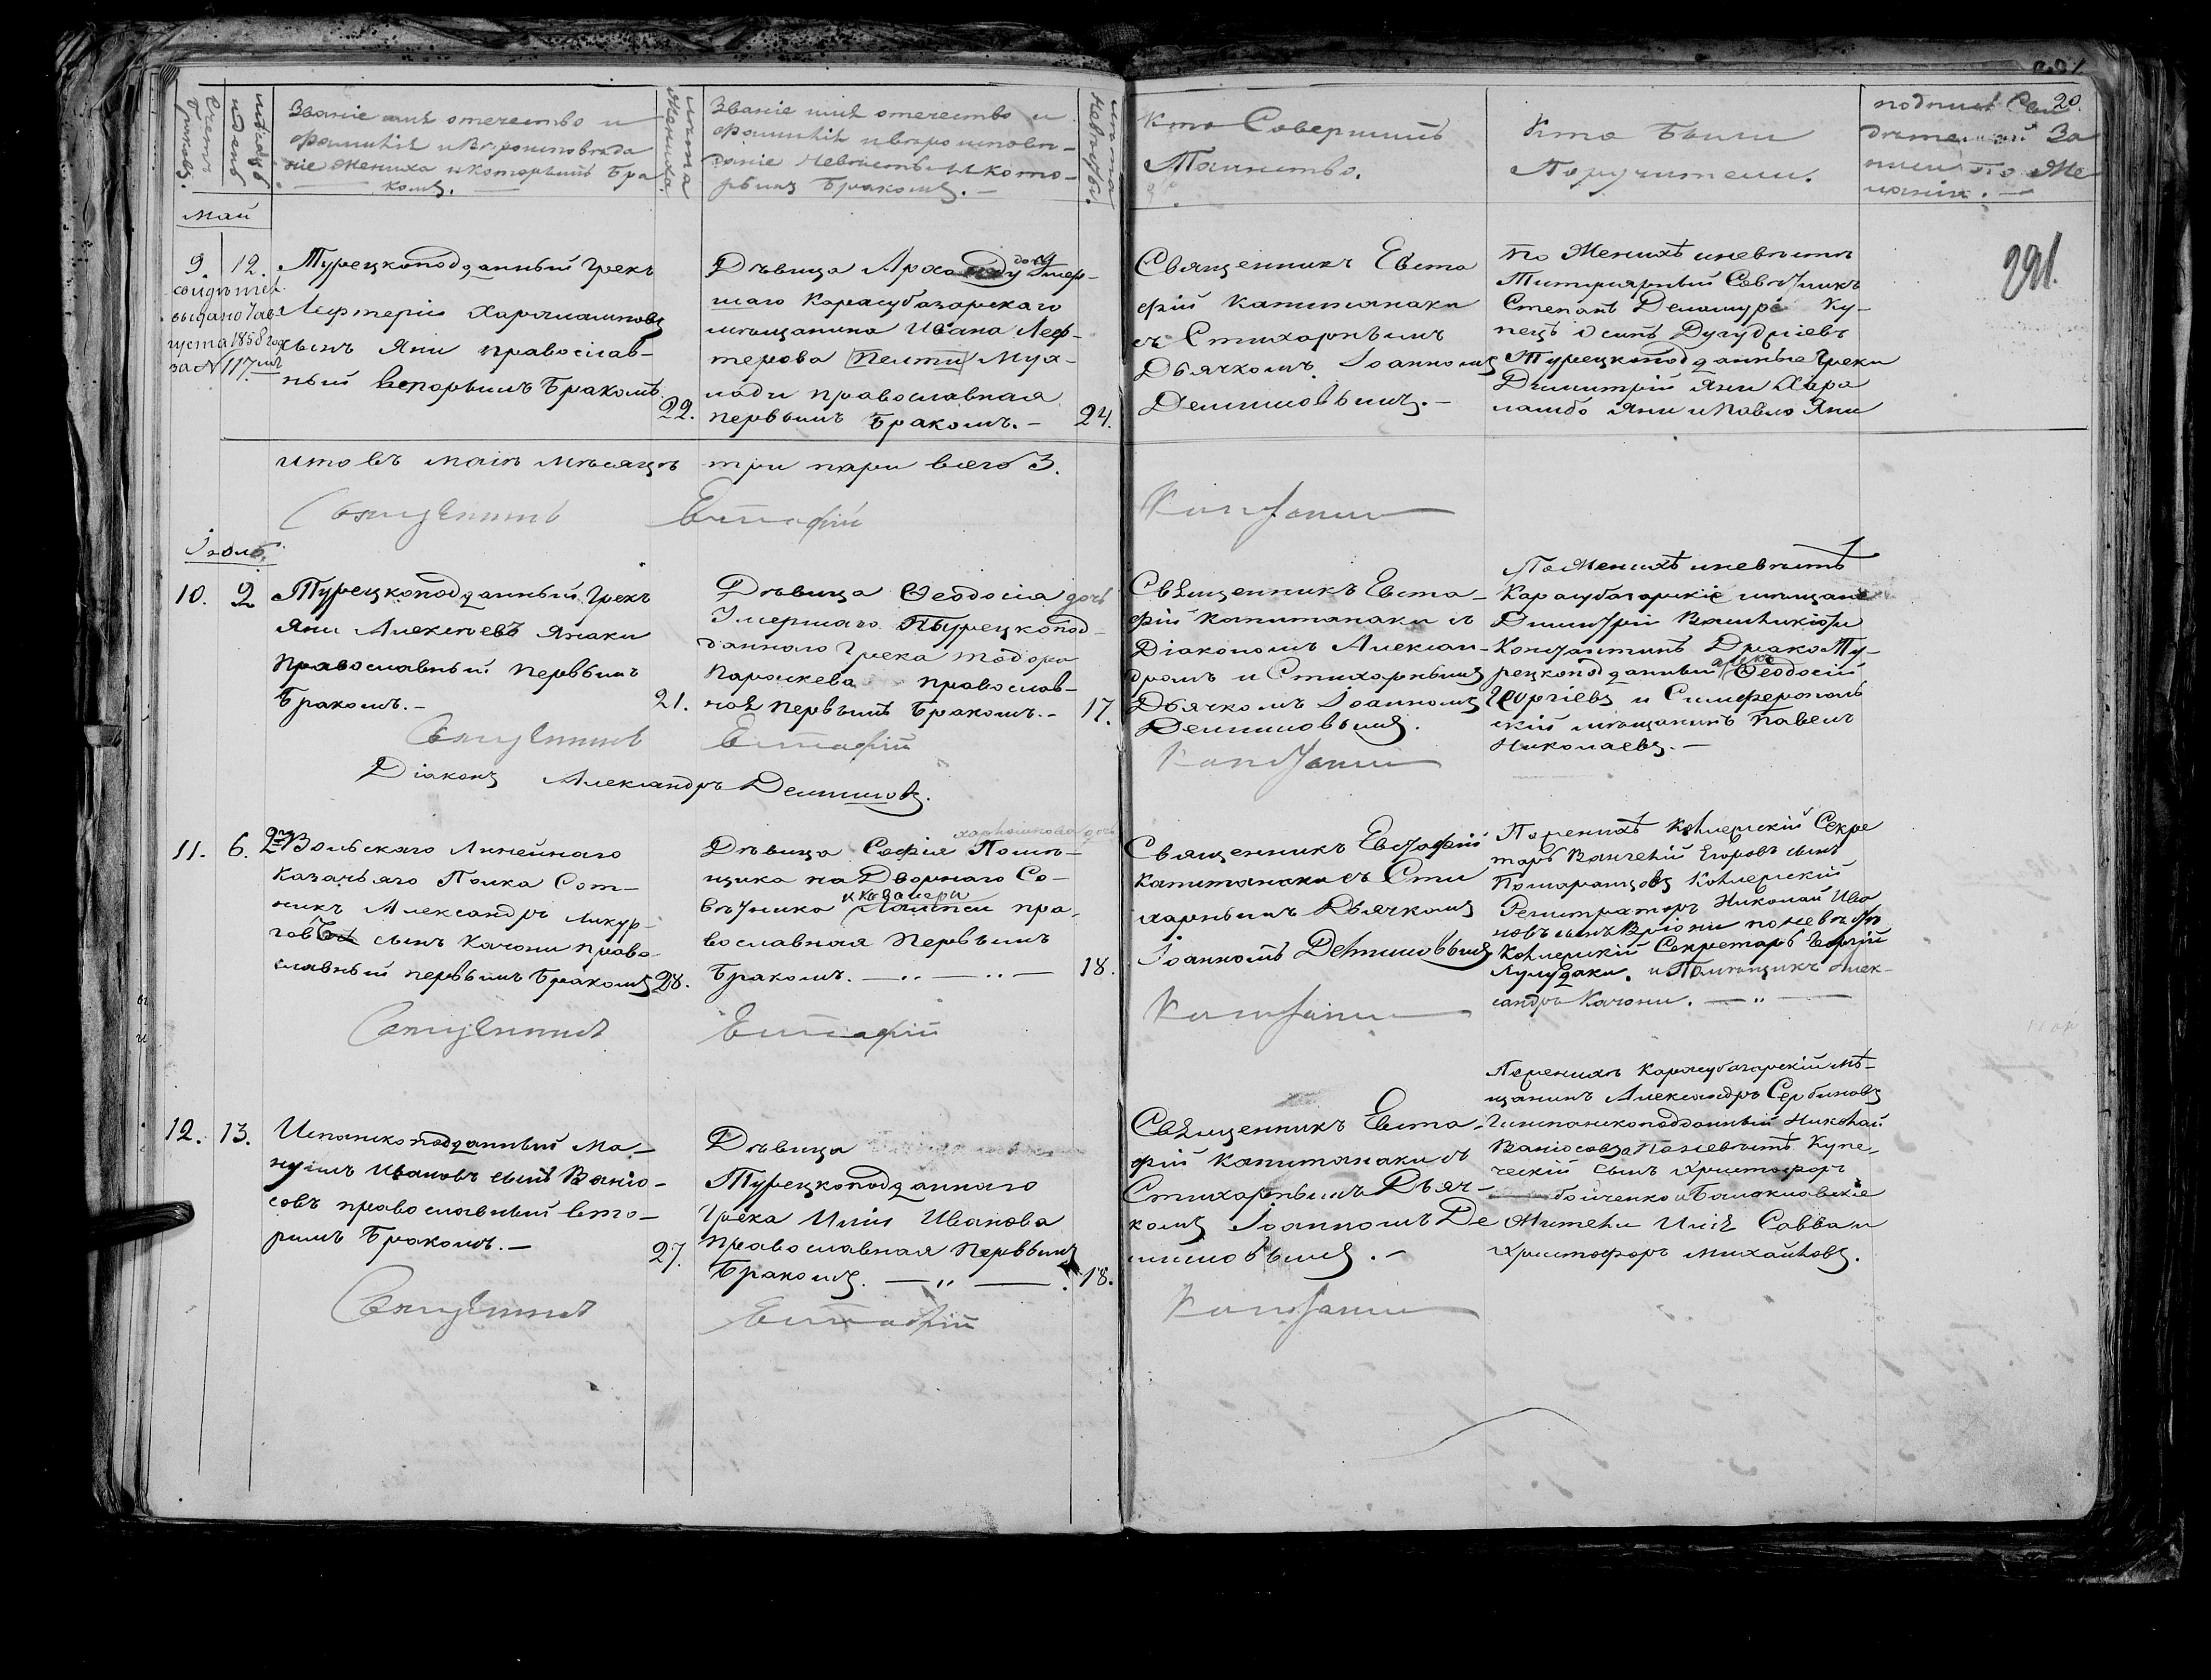 291
20.
Счетъ браковъ.
мѣсяцъ и день
Званіе имя отечество и
фамилія и вѣроисповѣда
ніе Жениха и которымъ бра
комъ.
лѣта Жениха.
Званіе имя отечество и
фамилія и вѣроисповѣ-
даніе Невѣсты и кото-
рымъ бракомъ. —
лѣта Невѣсты.
Кто Совершилъ
Таинство.
Кто были
Поручители.
подписъ Сви
дѣтелей За
писи по Же
ланію. —
май
9. 12. Турецкоподданный Грекъ
свидѣтел.
выдано 7 ав
густа 1858 год
за N 117мъ
Лефтерій Харалампіевъ
сынъ Яни православ-
ный вторымъ бракомъ.
22.
Дѣвица дочь Умер-
шаго Карасубазарскаго
мѣщанина Ивана Леф-
терова Пелти Мух-
лоди православная
первымъ бракомъ. —
24.
Священникъ Евста
фій Капитанаки
съ Стихарнымъ
Дьячкомъ Іоанномъ
Делимовымъ. —
по Женихѣ и невѣстѣ
Титулярный Совѣтникъ
Степанъ Ку-
пецъ Осипъ
Турецкоподданные Греки
Димитрій Яни Хара
ламбо Яни и Павло Яни
291.
итовъ маіѣ мѣсяцѣ три пари всего 3.
Священникъ Евстафій Капитанаки
Іюль.
10. 2 Турецкоподданный Грекъ
Яни Алексѣевъ Янаки
православный первымъ
бракомъ. —
21.
Дѣвица Ѳеодосіа дочь
Умершаго Турецкопод-
даннаго Грека Тодора
Параскева православ-
ная первымъ бракомъ. —
17.
Священникъ Евста-
фій Капитанаки съ
Діакономъ Алексан-
дромъ и Стихарнымъ
Дьячкомъ Іоанномъ
Делимовымъ.
По Женихѣ и невѣстѣ
Карасубазарскіе мѣщане
Димитрій
Константинъ Драко Ту-
рецкоподданный грекъ Ѳеодосій
Георгіевъ и Симферополь
скій мѣщанинъ Павелъ
Николаевъ. —
Священникъ Евстафій Капитанаки
Діаконъ Александръ Делимовъ.
11. 6. 2го Вольскаго Линейнаго
Казачьяго Полка Сот-
никъ Александръ Ликур-
говъ сынъ Качони право-
славный первымъ бракомъ
28.
Дѣвица Софія Помѣ-
щика надворнаго Со-
вѣтника и кавалера пра-
вославная первымъ
бракомъ. — .. — .. —
18.
Священникъ Евстафій
Капитанаки съ Сти
харнымъ Дьячкомъ
Іоанномъ Делимовымъ
По женихѣ Колежскій Секре
тарь Егоровъ сынъ
Помаранцовъ Колежскій
Регистраторъ Николай Ива
новъ сынъ Вріони по невѣстѣ
Колежскій Секретарь Георгій
и Помѣщикъ Алек-
сандръ Качони. — „ —
Священникъ Евстафій Капитанаки
12. 13. Испанско подданный Ма-
нуилъ Ивановъ сынъ Вангіо-
совъ православный вто-
римъ бракомъ. —
27.
Дѣвица
Турецкоподданнаго
Грека Иліи Иванова
Православная первымъ
бракомъ. — „ — .
18.
Священникъ Евста-
фій Капитанаки съ
Стихарнымъ Дьяч-
комъ Іоанномъ Де
лимовымъ. —
По женихѣ Карасубазарскій мѣ-
щанинъ Александръ Сербиновъ
Гишпанскоподданный Николай
по невѣстѣ Купе-
ческій сынъ Христофоръ
Бойченко и Балаклавскіе
Жители Илія Савва и
Христофоръ Михайловъ.
Священникъ Евстафій Капитанаки